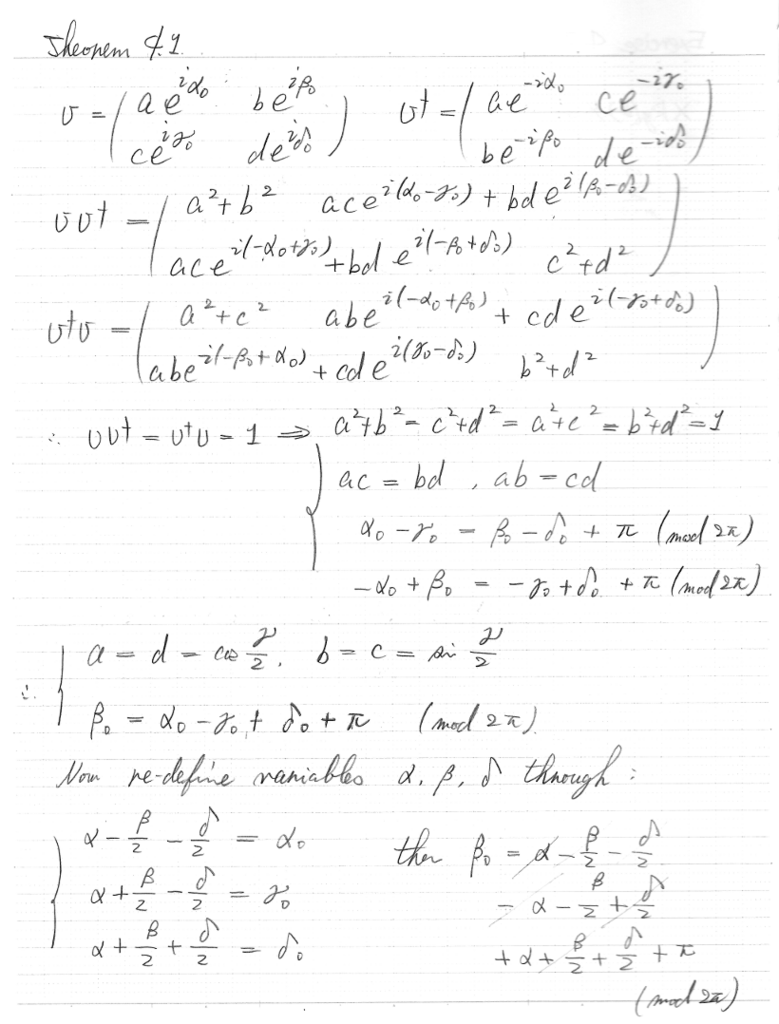 Theorem 4.1
U = ( ae^{iα₀} be^{iβ₀} U† = ( ae^{-iα₀} ce^{-iγ₀}
ce^{iγ₀} de^{iδ₀} ) be^{-iβ₀} de^{-iδ₀} )
UU† = ( a²+b² ace^{i(α₀-γ₀)} + bde^{i(β₀-δ₀)}
ace^{i(-α₀+γ₀)} + bde^{i(-β₀+δ₀)} c²+d² )
U†U = ( a²+c² abe^{i(-α₀+β₀)} + cde^{i(-γ₀+δ₀)}
abe^{i(-β₀+α₀)} + cde^{i(γ₀-δ₀)} b²+d² )
∴ UU† = U†U = 1 ⇒ { a²+b² = c²+d² = a²+c² = b²+d² = 1
ac = bd , ab = cd
α₀ - γ₀ = β₀ - δ₀ + π (mod 2π)
-α₀ + β₀ = -γ₀ + δ₀ + π (mod 2π)
∴ { a = d = cos γ/2, b = c = sin γ/2
β₀ = α₀ - γ₀ + δ₀ + π (mod 2π)
Now re-define variables α, β, δ through :
{ α - β/2 - δ/2 = α₀ then β₀ = α - β/2 - δ/2
α + β/2 - δ/2 = γ₀ - α - β/2 + δ/2
α + β/2 + δ/2 = δ₀ + α + β/2 + δ/2 + π
(mod 2π)